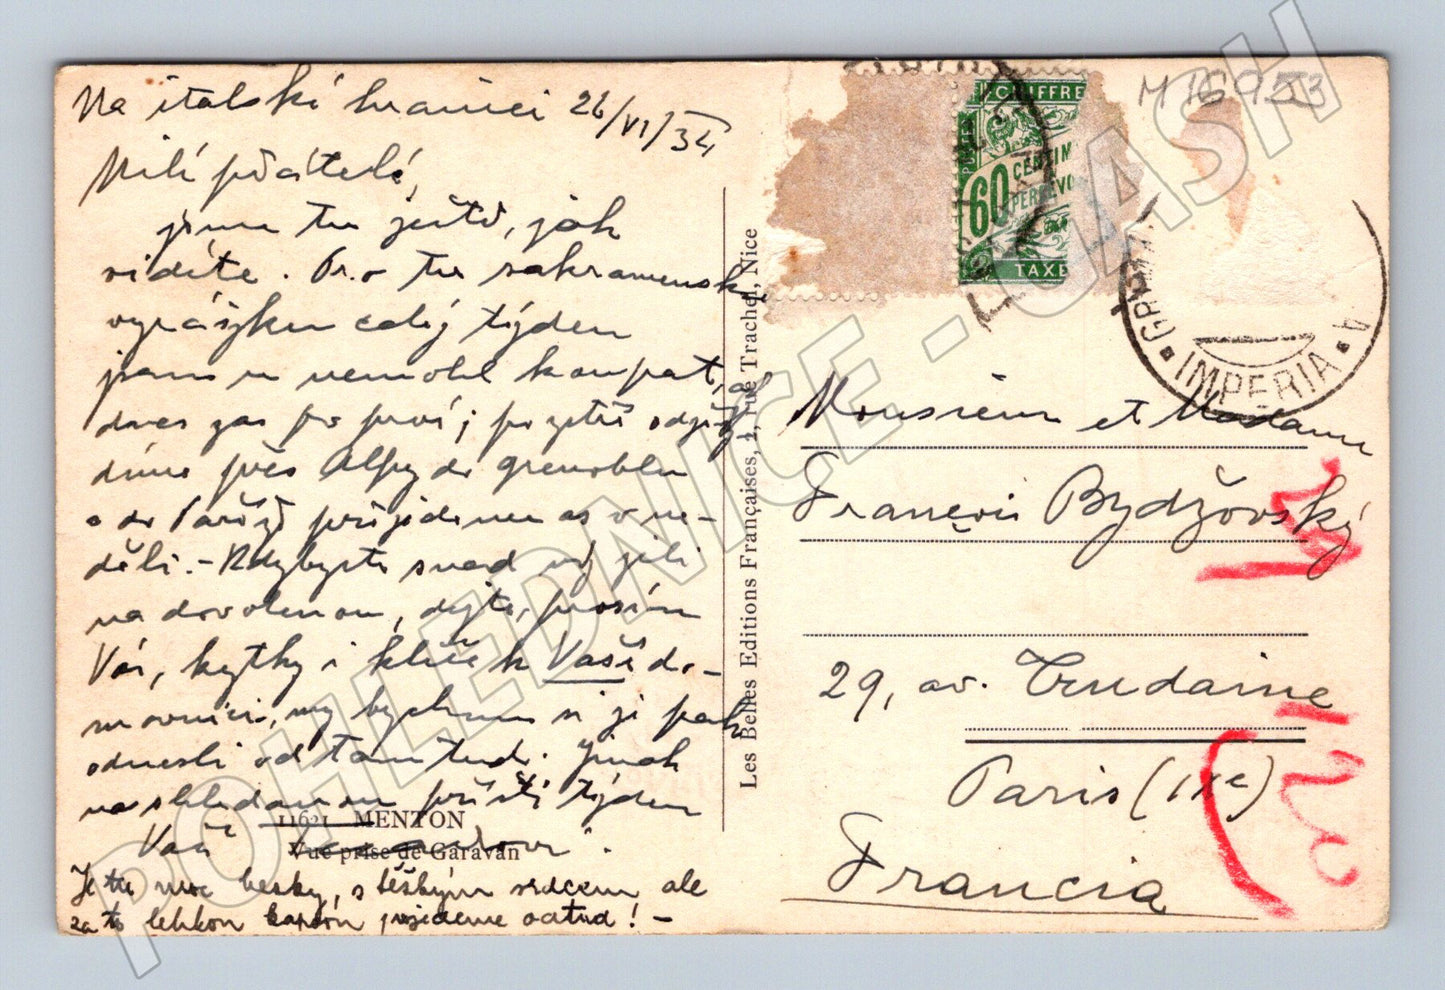 Na italské hranici 26/VI/34
Milí přátelé,
jsme tu ještě, jak
vidíte. Pro tu sakramensk
vyrážku celý týden
jsem se nemohl koupat,
dnes zas po prvé; pozítří odjíž
díme přes Alpy do Grenoblu
a do Paříže přijedeme as v ne-
děli. - Kdybyste snad vyjeli
na dovolenou, dejte, prosím
Vás, kytky i klíče k Vaší do-
movnici, my bychom si je pak
odnesli od tamtud. Jinak
na shledanou příští týden
Vaši
Je tu moc hesky, s těškým srdcem ale
za to lehkou kapsou pojedeme odtud! -
11621 MENTON
Vue prise de Garavan
Les Belles Editions Françaises, 1, rue Trachel, Nice
M 16953
CHIFFRE
60 CENTIM
PERCEVO
TAXE
IMPERIA
A
Monsieur et Madame
François Bydžovský
29, av. Trudaine
Paris (IXe)
Francia
POHLEDNICE - CASH